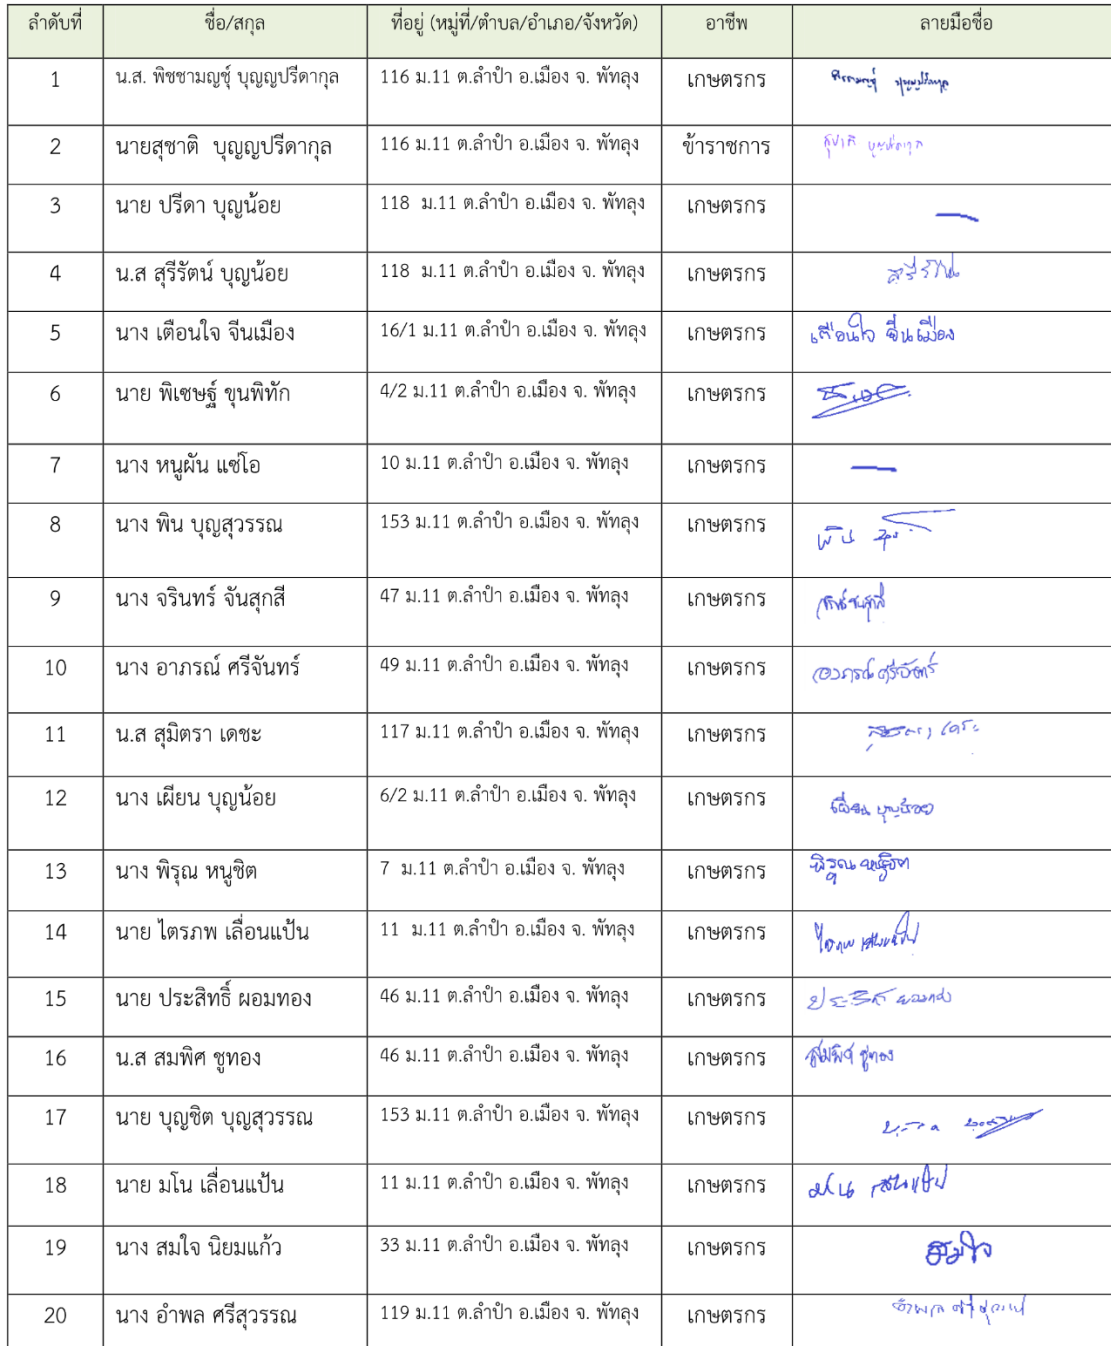 ลำดับที่ ชื่อ/สกุล ที่อยู่ (หมู่ที่/ตำบล/อำเภอ/จังหวัด) อาชีพ ลายมือชื่อ
1 น.ส. พิชชามญชุ์ บุญญปรีดากุล 116 ม.11 ต.ลำปำ อ.เมือง จ. พัทลุง เกษตรกร
2 นายสุชาติ บุญญปรีดากุล 116 ม.11 ต.ลำปำ อ.เมือง จ. พัทลุง ข้าราชการ สุชาติ
3 นาย ปรีดา บุญน้อย 118 ม.11 ต.ลำปำ อ.เมือง จ. พัทลุง เกษตรกร
4 น.ส สุรีรัตน์ บุญน้อย 118 ม.11 ต.ลำปำ อ.เมือง จ. พัทลุง เกษตรกร สุรีรัตน์
5 นาง เตือนใจ จีนเมือง 16/1 ม.11 ต.ลำปำ อ.เมือง จ. พัทลุง เกษตรกร เตือนใจ จีนเมือง
6 นาย พิเชษฐ์ ขุนพิทัก 4/2 ม.11 ต.ลำปำ อ.เมือง จ. พัทลุง เกษตรกร
7 นาง หนูผัน แซ่โอ 10 ม.11 ต.ลำปำ อ.เมือง จ. พัทลุง เกษตรกร
8 นาง พิน บุญสุวรรณ 153 ม.11 ต.ลำปำ อ.เมือง จ. พัทลุง เกษตรกร พิน
9 นาง จรินทร์ จันสุกสี 47 ม.11 ต.ลำปำ อ.เมือง จ. พัทลุง เกษตรกร
10 นาง อาภรณ์ ศรีจันทร์ 49 ม.11 ต.ลำปำ อ.เมือง จ. พัทลุง เกษตรกร อาภรณ์ ศรีจันทร์
11 น.ส สุมิตรา เดชะ 117 ม.11 ต.ลำปำ อ.เมือง จ. พัทลุง เกษตรกร
12 นาง เผียน บุญน้อย 6/2 ม.11 ต.ลำปำ อ.เมือง จ. พัทลุง เกษตรกร เผียน บุญน้อย
13 นาง พิรุณ หนูชิต 7 ม.11 ต.ลำปำ อ.เมือง จ. พัทลุง เกษตรกร พิรุณ หนูชิต
14 นาย ไตรภพ เลื่อนแป้น 11 ม.11 ต.ลำปำ อ.เมือง จ. พัทลุง เกษตรกร ไตรภพ เลื่อนแป้น
15 นาย ประสิทธิ์ ผอมทอง 46 ม.11 ต.ลำปำ อ.เมือง จ. พัทลุง เกษตรกร ประสิทธิ์ ผอมทอง
16 น.ส สมพิศ ชูทอง 46 ม.11 ต.ลำปำ อ.เมือง จ. พัทลุง เกษตรกร สมพิศ ชูทอง
17 นาย บุญชิต บุญสุวรรณ 153 ม.11 ต.ลำปำ อ.เมือง จ. พัทลุง เกษตรกร
18 นาย มโน เลื่อนแป้น 11 ม.11 ต.ลำปำ อ.เมือง จ. พัทลุง เกษตรกร มโน เลื่อนแป้น
19 นาง สมใจ นิยมแก้ว 33 ม.11 ต.ลำปำ อ.เมือง จ. พัทลุง เกษตรกร สมใจ
20 นาง อำพล ศรีสุวรรณ 119 ม.11 ต.ลำปำ อ.เมือง จ. พัทลุง เกษตรกร อำพล ศรีสุวรรณ